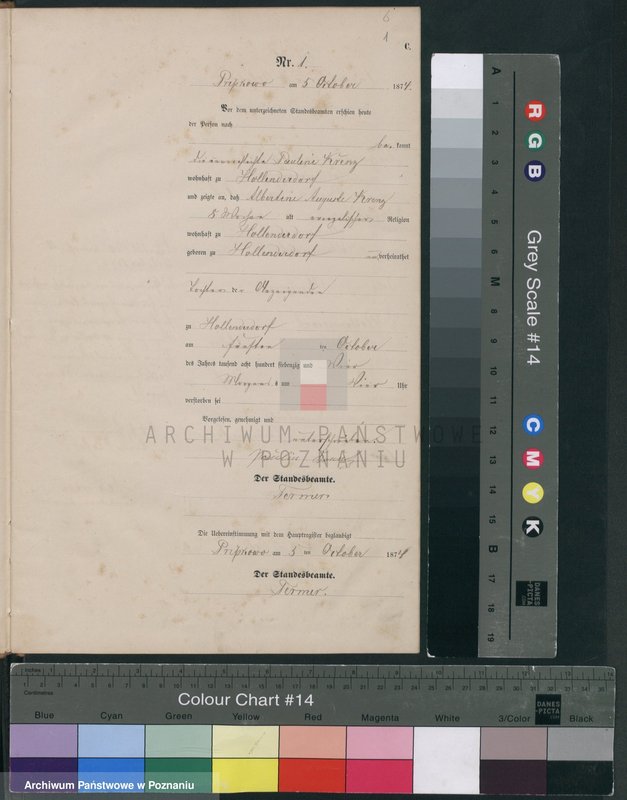 6
1
C.
Nr. 1.
am 5 October 1874.
Vor dem unterzeichneten Standesbeamten erschien heute
der Person nach
be kannt
die unverehelichte Pauline Krenz
wohnhaft zu Hollenderdorf
und zeigte an, daß Albertine Auguste Krenz
8 Wochen alt evangelischer Religion
wohnhaft zu Hollenderdorf
geboren zu Hollenderdorf unverheirathet
Tochter der Anzeigenden
zu Hollenderdorf
am fünften ten October
des Jahres tausend acht hundert siebenzig und Vier
Morgens um Vier Uhr
verstorben sei
Vorgelesen, genehmigt und
unterschrieben.
Der Standesbeamte.
Termer
Die Uebereinstimmung mit dem Hauptregister beglaubigt
am 5 ten October 1874
Der Standesbeamte.
Termer.
ARCHIWUM PAŃSTWOWE
W POZNANIU
A 1 2 3 4 5 6 M 8 9 10 11 12 13 14 15 B 17 18 19
R G B
Grey Scale #14
C M Y K
DANES-PICTA.COM
Inches 1 2 3 4 5 6 7 8 9 10 11 12 13 14
Centimetres
Colour Chart #14
DANES-PICTA.COM
Blue Cyan Green Yellow Red Magenta White 3/Color Black
Archiwum Państwowe w Poznaniu